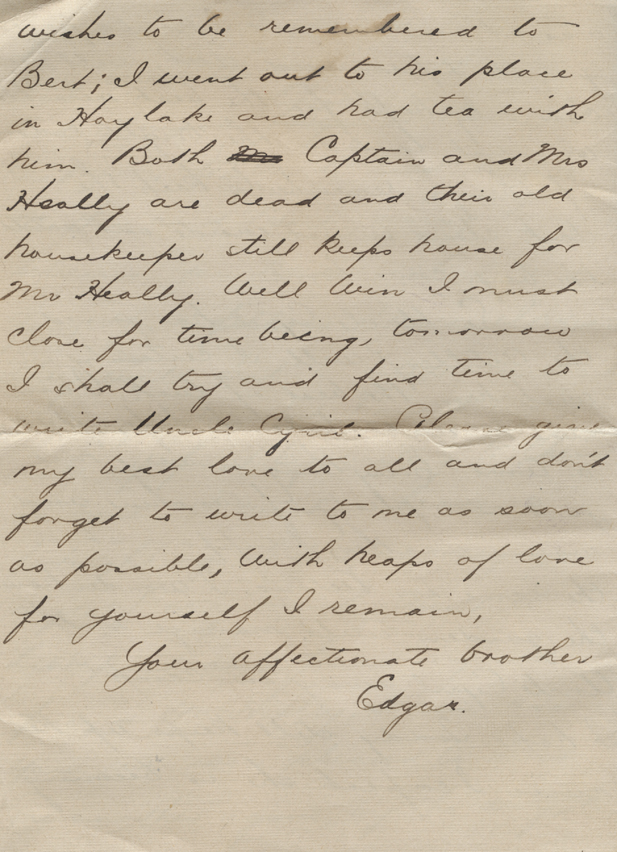 wishes to be remembered to
Bert; I went out to his place
in Hoylake and had tea with
him. Both Captain and Mrs
Heally are dead and their old
housekeeper still keeps house for
Mr Heally. Well Win I must
close for time being, tomorrow
I shall try and find time to
write Uncle Cyril. Please give
my best love to all and don't
forget to write to me as soon
as possible, With heaps of love
for yourself I remain,
Your affectionate brother
Edgar.